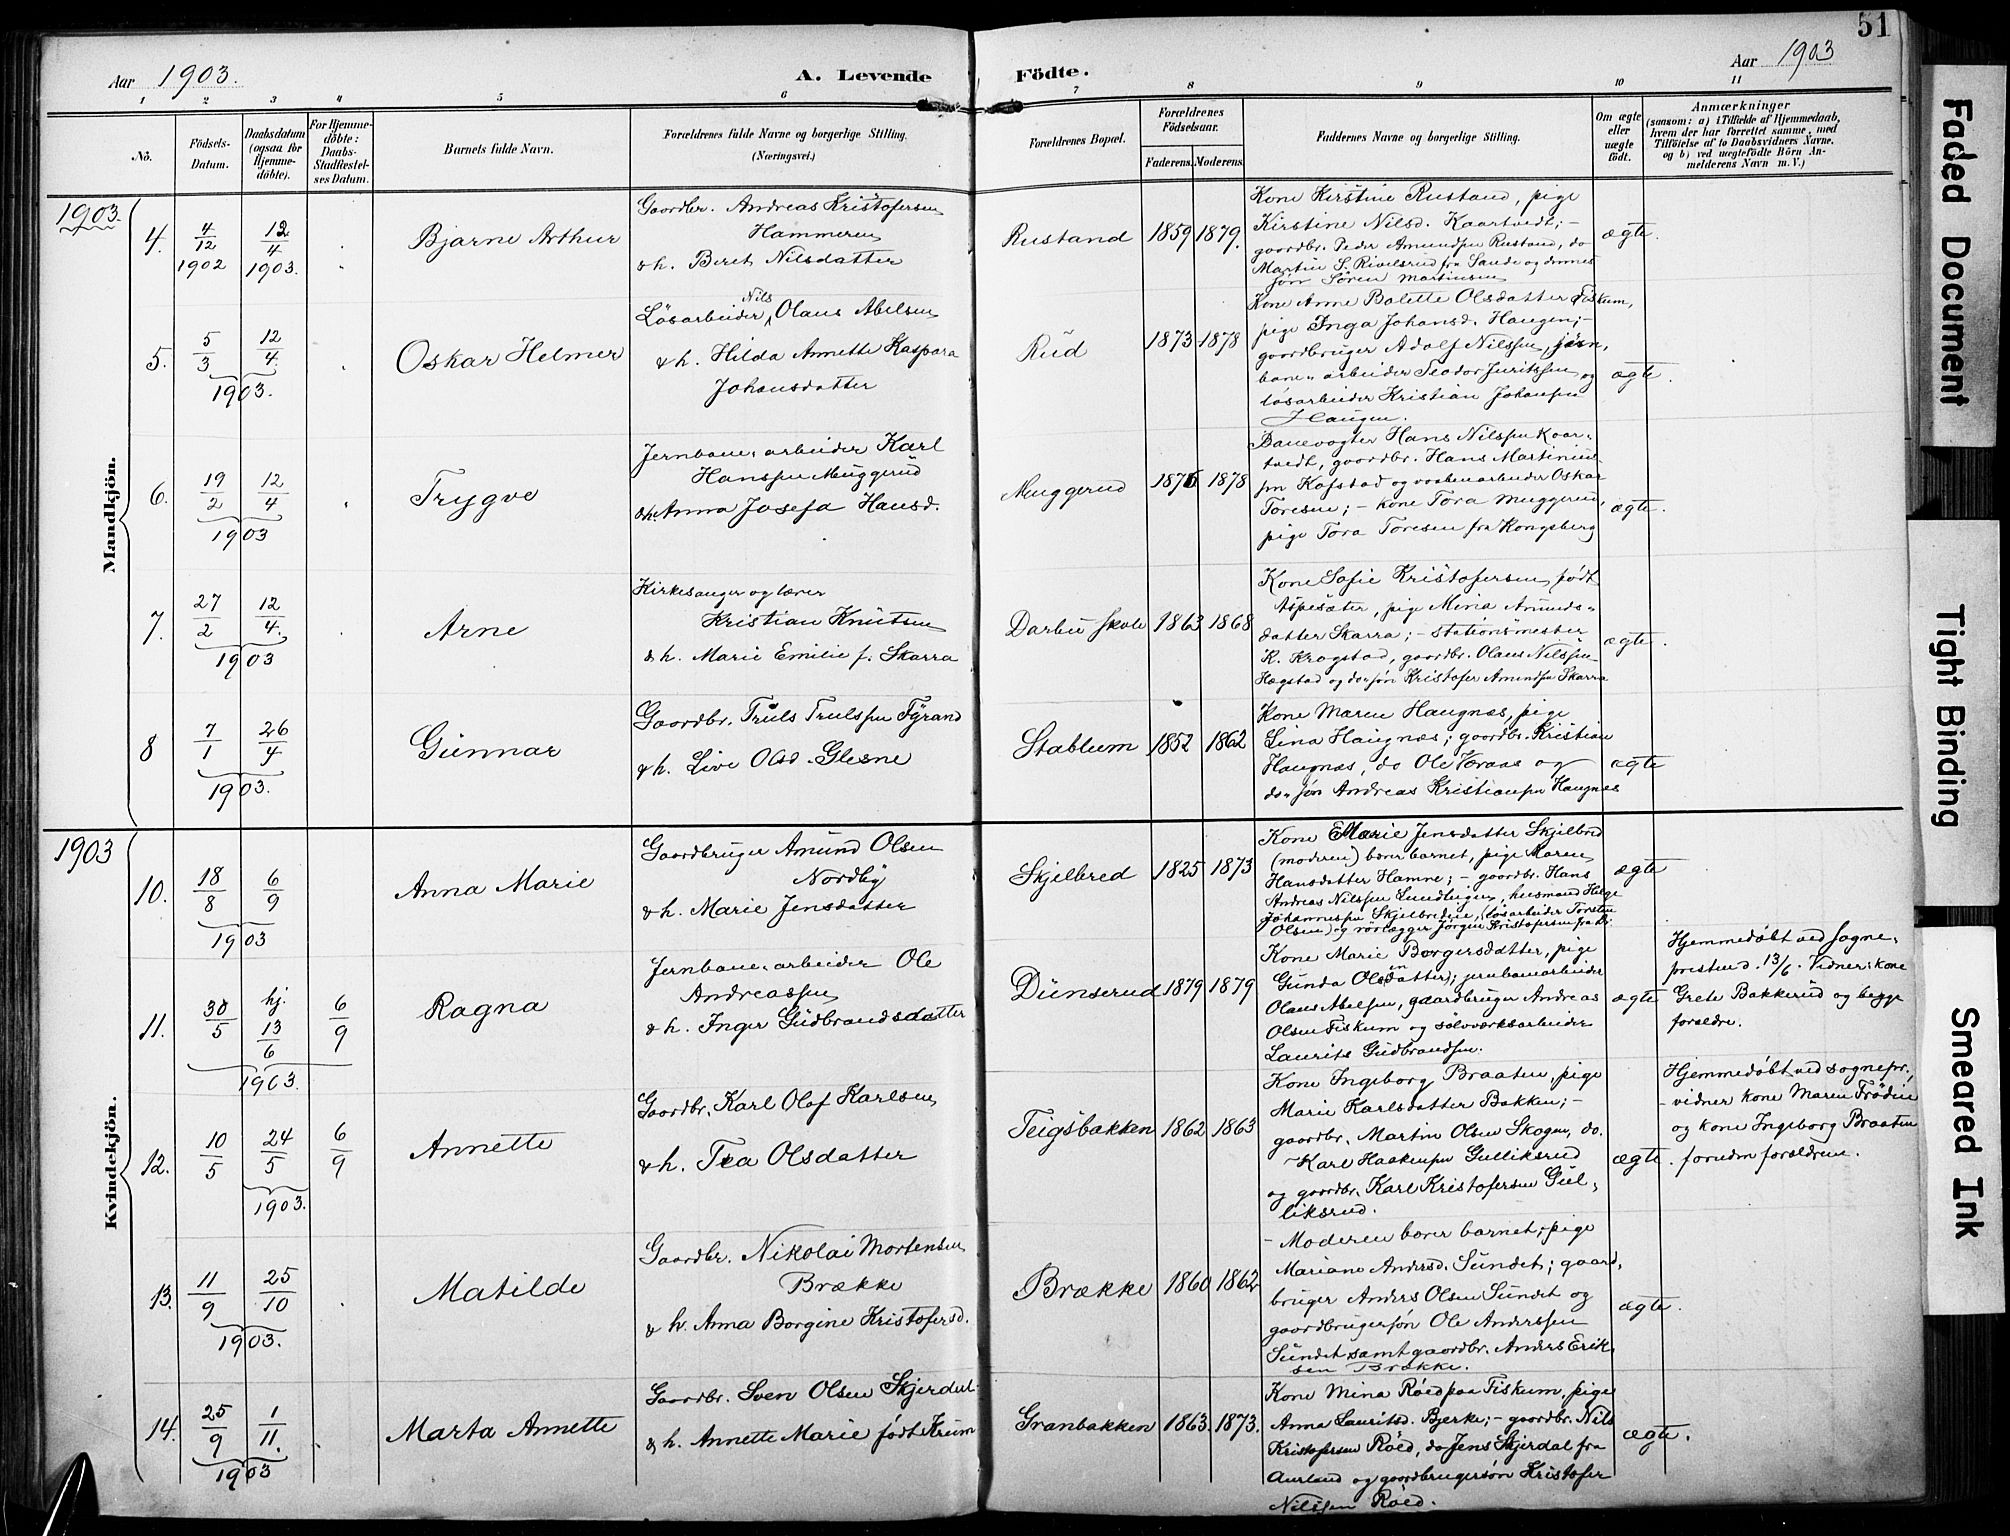 51
Aar 1903.
A. Levende
Födte.
Aar 1903
1 2 3 4 5 6 7 8 9 10 11
No.
Födsels-
Datum.
Daabsdatum
(ogsaa for
Hjemme-
döbte).
For Hjemme-
döbte:
Daabs-
Stadfæstel-
ses Datum.
Barnets fulde Navn.
Forældrenes fulde Navne og borgerlige Stilling.
(Næringsvei.)
Forældrenes Bopæl.
Forældrenes
Födselsaar.
Faderens.
Moderens.
Faddernes Navne og borgerlige Stilling.
Om ægte
eller
uægte
födt.
Anmærkninger
(saasom: a) i Tilfælde af Hjemmedaab,
hvem der har forrettet samme, med
Tilföielse af to Daabsvidners Navne,
og b) ved uægtefödte Börn An-
melderens Navn m. V.)
Mandkjön.
1903
4. 4/12 1902
12/4 1903.
Bjarne Arthur
Gaardbr. Andreas Kristofersen
Hammeren
& h. Beret Nilsdatter
Rustand
1859 1879.
Kone Kirstine Rustand, pige
Kirstine Nilsd. Kaartvedt; -
gaardbr. Peder Amundsen Rustand, do
Martin S. Rivelsrud fra Sande og dennes
søn Søren Martinsen
ægte.
5. 5/3 12/4
1903.
Oskar Helmer
Løsarbeider Nils Olaus Abelsen
& h. Hilda Annette Kaspara
Johansdatter
Rud
1873 1878
Kone Anne Bolette Olsdatter Fiskum,
pige Inga Johansd. Haugen; -
gaardbruger Adolf Nilssen, jern,
bane„ arbeider Teodor Juritssen og
løsarbeider Kristian Johansen
Haugen.
ægte.
6. 19/2 12/4
1903
Trygve
Jernbane„ arbeider Karl
Hanssen Muggerud
& h. Anna Josefa Hansd.
Muggerud
1876 1878
Banevogter Hans Nilssen Kaar-
tvedt, gaardbr. Hans Martinius
sen Kofstad og vaabenarbeider Oskar
Toresen; - kone Tora Muggerud,
pige Tora Toresen fra Kongsberg
ægte.
7. 27/2 12/4.
1903
Arne
Kirkesanger og lærer
Kristian Knutsen
& h. Marie Emilie f. Skarra
Darbu skole
1863 1868
Kone Sofie Kristofersen født
Aspesæter, pige Mina Amunds-
datter Skarra; - stationsmester
K. Krogstad, gaardbr. Olaus Nilssen
Hægstad og do„ søn Kristofer Amundsen Skarra
ægte.
8 7/1 26/4
1903.
Gunnar
Gaardbr. Truls Trulssen Fyrand
& h. Live Olsd. Glesne
Stablum
1852 1862
Kone Maren Haugnæs, pige
Lina Haugnæs; gaardbr. Kristian
Haugnæs, do Ole Væraas og
do„ søn Andreas Kristiansen Haugnæs
ægte
Kvindekjön.
1903
10. 18/8 6/9
1903
Anna Marie
Gaardbruger Amund Olsen
Nordby
& h. Marie Jensdatter
Skjelbred
1825 1873
Kone Marie Jensdatter Skjelbred
(moderen) bærer barnet, pige Maren
Hansdatter Hamne; - gaardbr. Hans
Andreas Nilssen Lundteigen, husmand Helge
Johannessen Skjelbredeie, (løsarbeider Torsten
Olsen) og rørlægger Jørgen Kristofersen fra
ægte
11. 30/5 hj. 13/6 6/9
1903.
Ragna
Jernbane„ arbeider Ole
Andreassen
& h. Inger Gudbrandsdatter
Dunserud
1879 1879
Kone Marie Borgersdatter, pige
Gunda Olsdatter; jernbanearbeider
Olaus Abelsen, gaardbruger Andreas
Olsen Fiskum og sølvværksarbeider
Laurits Gudbrandsen.
ægte
Hjemmedøbt ved sogne,
presten d. 13/6. Vidner: kone
Grete Bakkerud og begge
forældre.
12. 10/5 24/5 6/9
1903.
Annette
Gaardbr. Karl Olof Karlsen
& h. Tea Olsdatter
Teigsbakken
1862 1863
Kone Ingeborg Braaten, pige
Marie Karlsdatter Bakken; -
gaardbr. Martin Olsen Skogen, do.
Karl Haakensen Gulliksrud
og gaardbr. Karl Kristofersen Gul,
liksrud.
ægte.
Hjemmedøbt ved sognepr.,
- vidner kone Maren Frødin
og kone Ingeborg Braaten
foruden forældrene.
13. 11/9 25/10
1903.
Matilde
Gaardbr. Nikolai Mortensen
Brække
& h. Anna Borgine Kristofersd.
Brække
1860 1862
- Moderen bærer barnet; pige
Mariane Andersd. Sundet; gaard,
bruger Anders Olsen Sundet og
gaardbrugersøn Ole Anderssen
Sundet samt gaardbr. Anders Erik-
sen Brække.
ægte.
14. 25/9 1/11.
1903
Marta Annette
Gaardbr. Sven Olsen Skjerdal
& h. Annette Marie født Krum
Granbakken
1863. 1873.
Kone Mina Røed paa Fiskum, pige
Anna Lauritsd. Bjerke; - gaardbr. Nils
Kristofersen Røed, do Jens Skjerdal fra
Aurland og gaardbrugersøn Kristofer
Nilssen Røed.
ægte.
Faded Document
Tight Binding
Smeared Ink